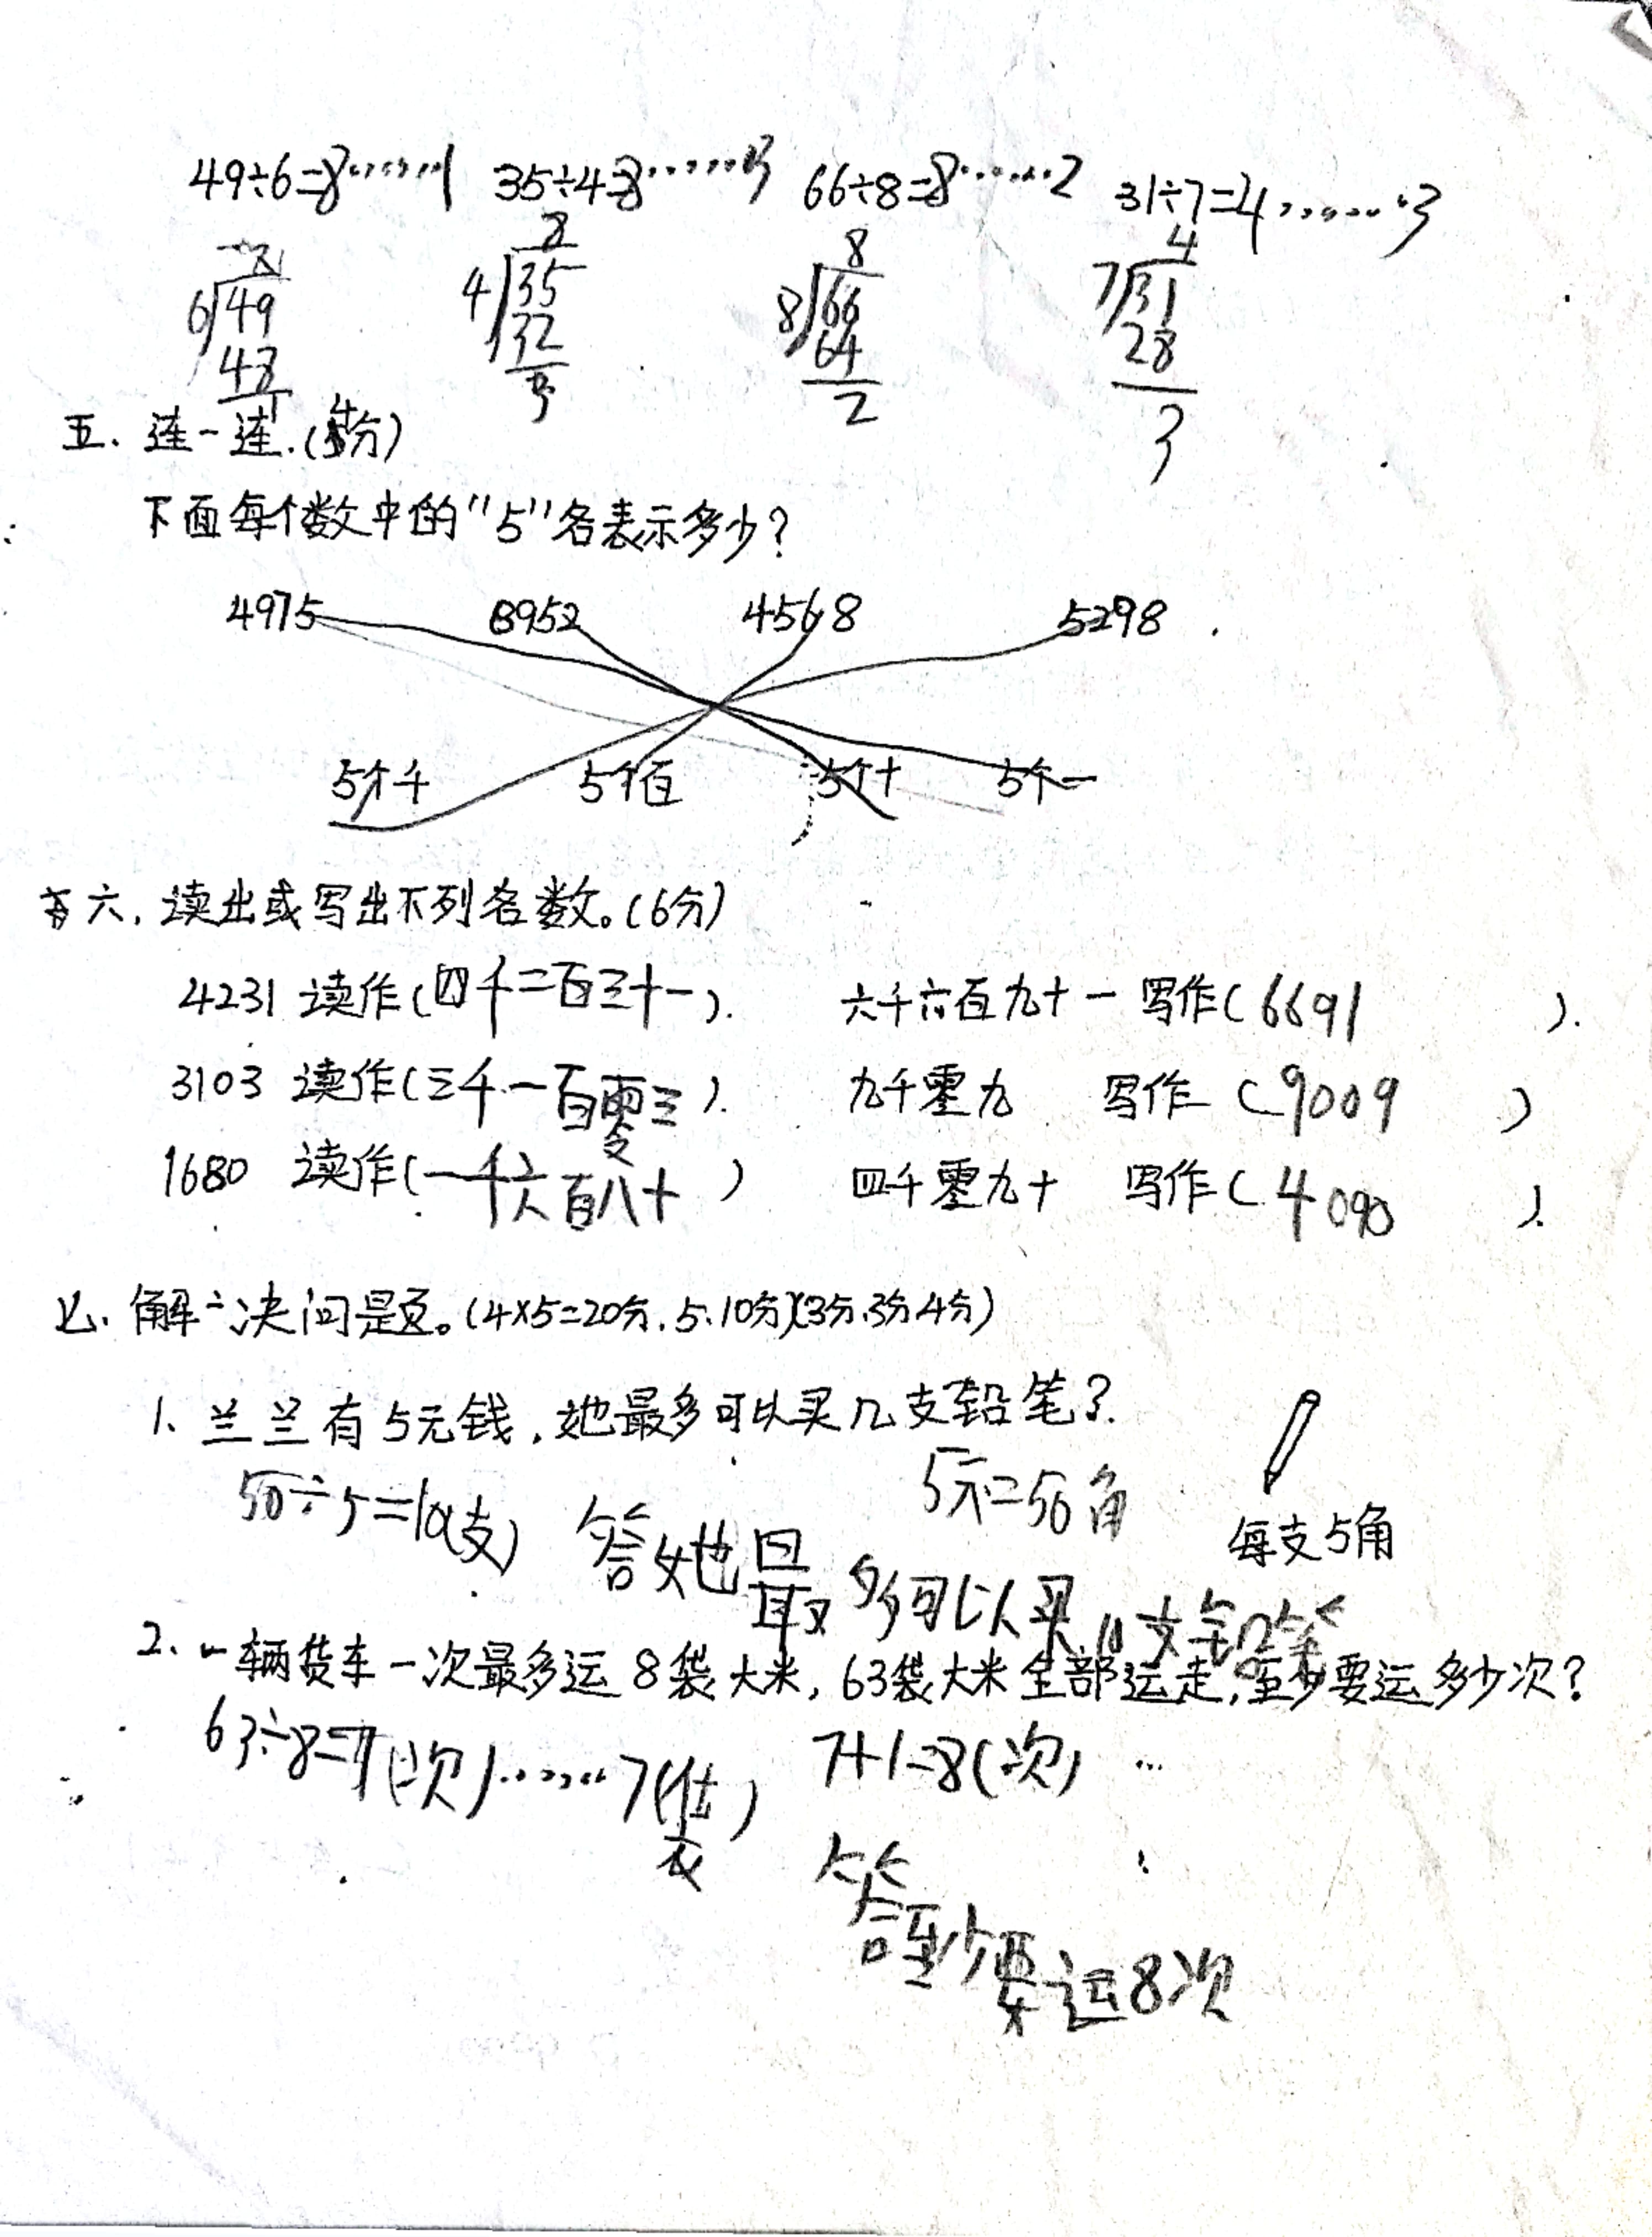 49÷6=8……1 35÷4=8……3 66÷8=8……2 31÷7=4……3
8 8 8 4
6 49 4 35 8 66 7 31
48 32 64 28
1 3 2 3
五.连一连.(4分)
下面每个数中的"5"各表示多少?
4975 8952 4568 5298
5个千 5个百 5个十 5个一
六.读出或写出下列各数。(6分)
4231 读作(四千二百三十一). 六千六百九十一 写作(6691).
3103 读作(三千一百零三). 九千零九 写作(9009)
1680 读作(一千六百八十) 四千零九十 写作(4090).
七.解决问题。(4×5=20分.5.10分)(3分.3分.4分)
1.兰兰有5元钱,她最多可以买几支铅笔?
50÷5=10(支) 5元=50角
答她最多可以买10支铅笔
每支5角
2.一辆货车一次最多运8袋大米,63袋大米全部运走,至少要运多少次?
63÷8=7(次)……7(袋) 7+1=8(次)
答至少要运8次